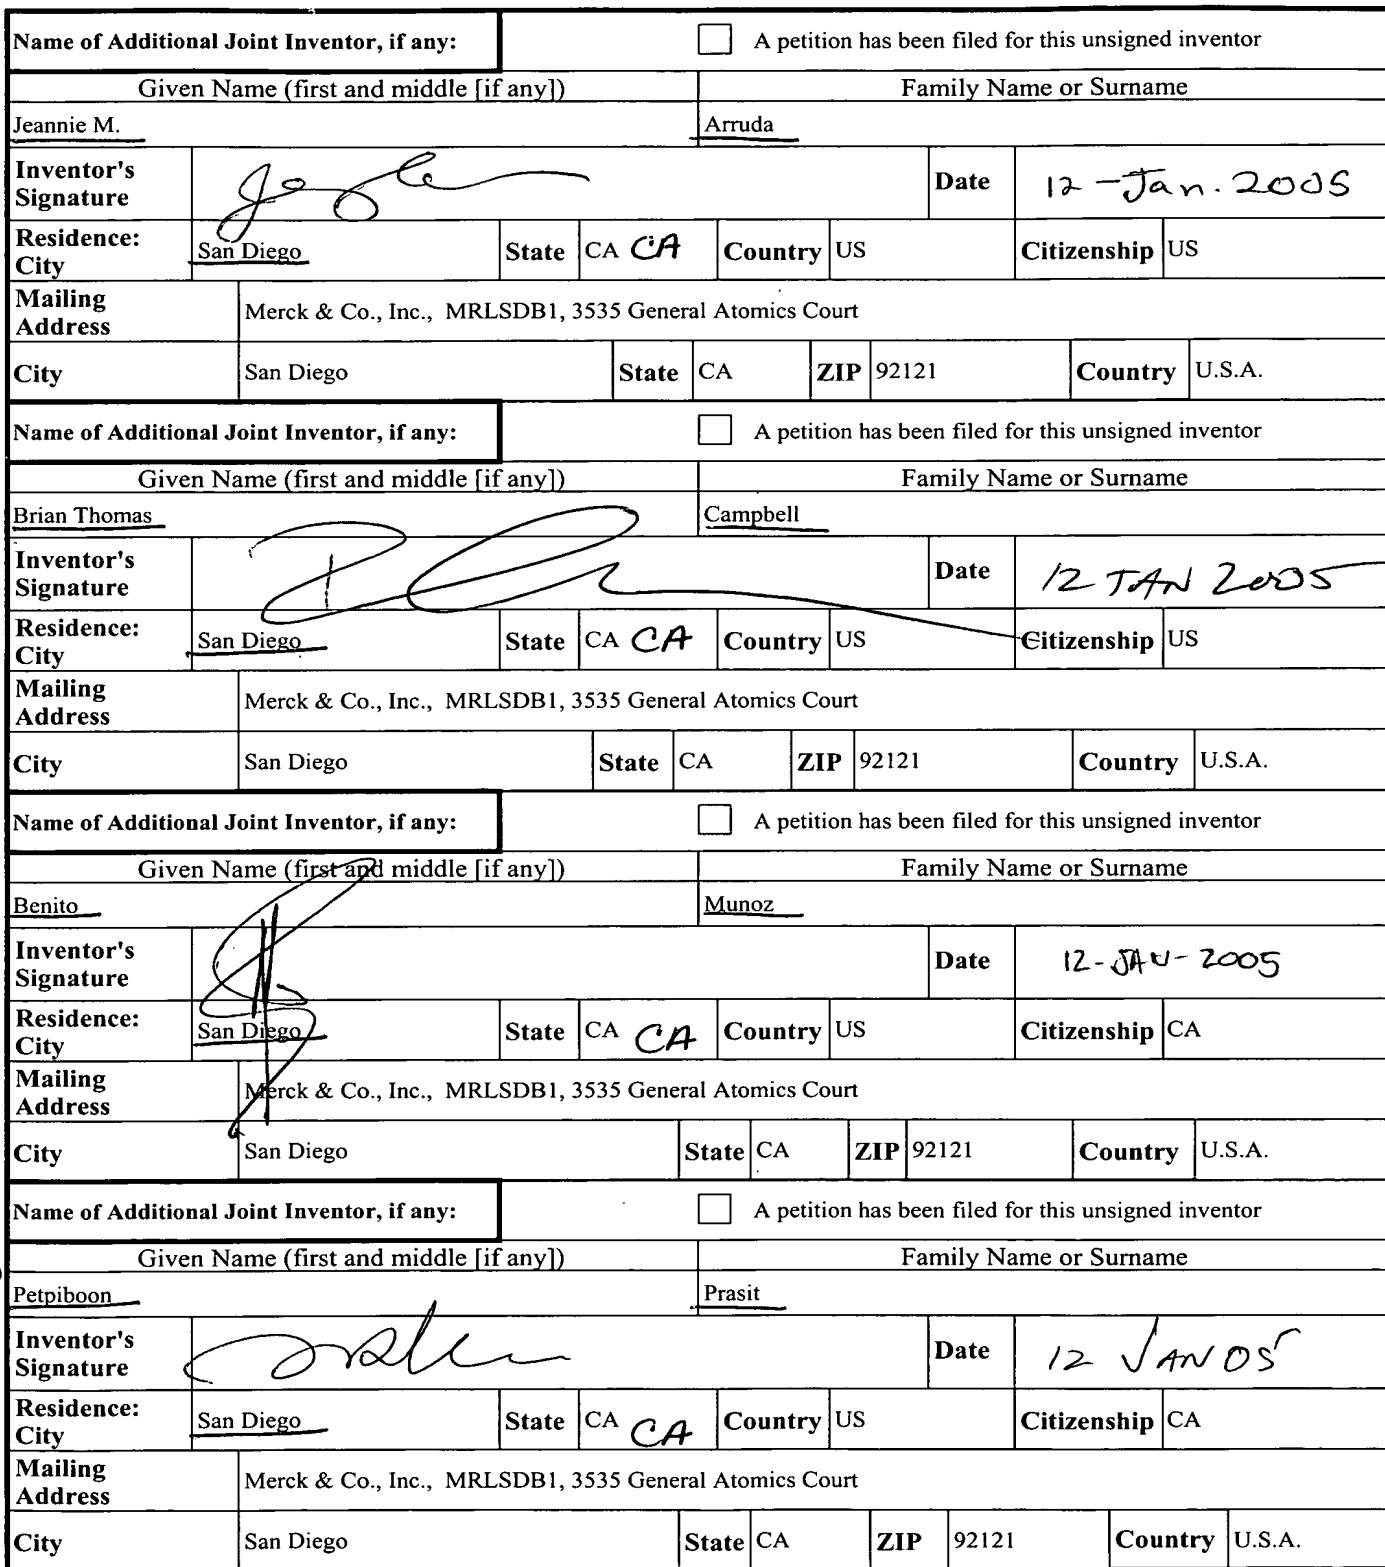 Name of Additional Joint Inventor, if any: A petition has been filed for this unsigned inventor
Given Name (first and middle [if any]) Family Name or Surname
Jeannie M. Arruda
Inventor's Signature Date 12-Jan. 2005
Residence: City San Diego State CA CA Country US Citizenship US
Mailing Address Merck & Co., Inc., MRLSDB1, 3535 General Atomics Court
City San Diego State CA ZIP 92121 Country U.S.A.
Name of Additional Joint Inventor, if any: A petition has been filed for this unsigned inventor
Given Name (first and middle [if any]) Family Name or Surname
Brian Thomas Campbell
Inventor's Signature Date 12 JAN 2005
Residence: City San Diego State CA CA Country US Citizenship US
Mailing Address Merck & Co., Inc., MRLSDB1, 3535 General Atomics Court
City San Diego State CA ZIP 92121 Country U.S.A.
Name of Additional Joint Inventor, if any: A petition has been filed for this unsigned inventor
Given Name (first and middle [if any]) Family Name or Surname
Benito Munoz
Inventor's Signature Date 12-JAN-2005
Residence: City San Diego State CA CA Country US Citizenship CA
Mailing Address Merck & Co., Inc., MRLSDB1, 3535 General Atomics Court
City San Diego State CA ZIP 92121 Country U.S.A.
Name of Additional Joint Inventor, if any: A petition has been filed for this unsigned inventor
Given Name (first and middle [if any]) Family Name or Surname
Petpiboon Prasit
Inventor's Signature Date 12 JAN 05
Residence: City San Diego State CA CA Country US Citizenship CA
Mailing Address Merck & Co., Inc., MRLSDB1, 3535 General Atomics Court
City San Diego State CA ZIP 92121 Country U.S.A.